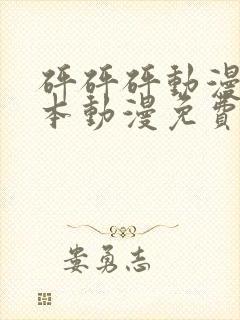 砰砰砰動漫
本動漫免費
娄勇志